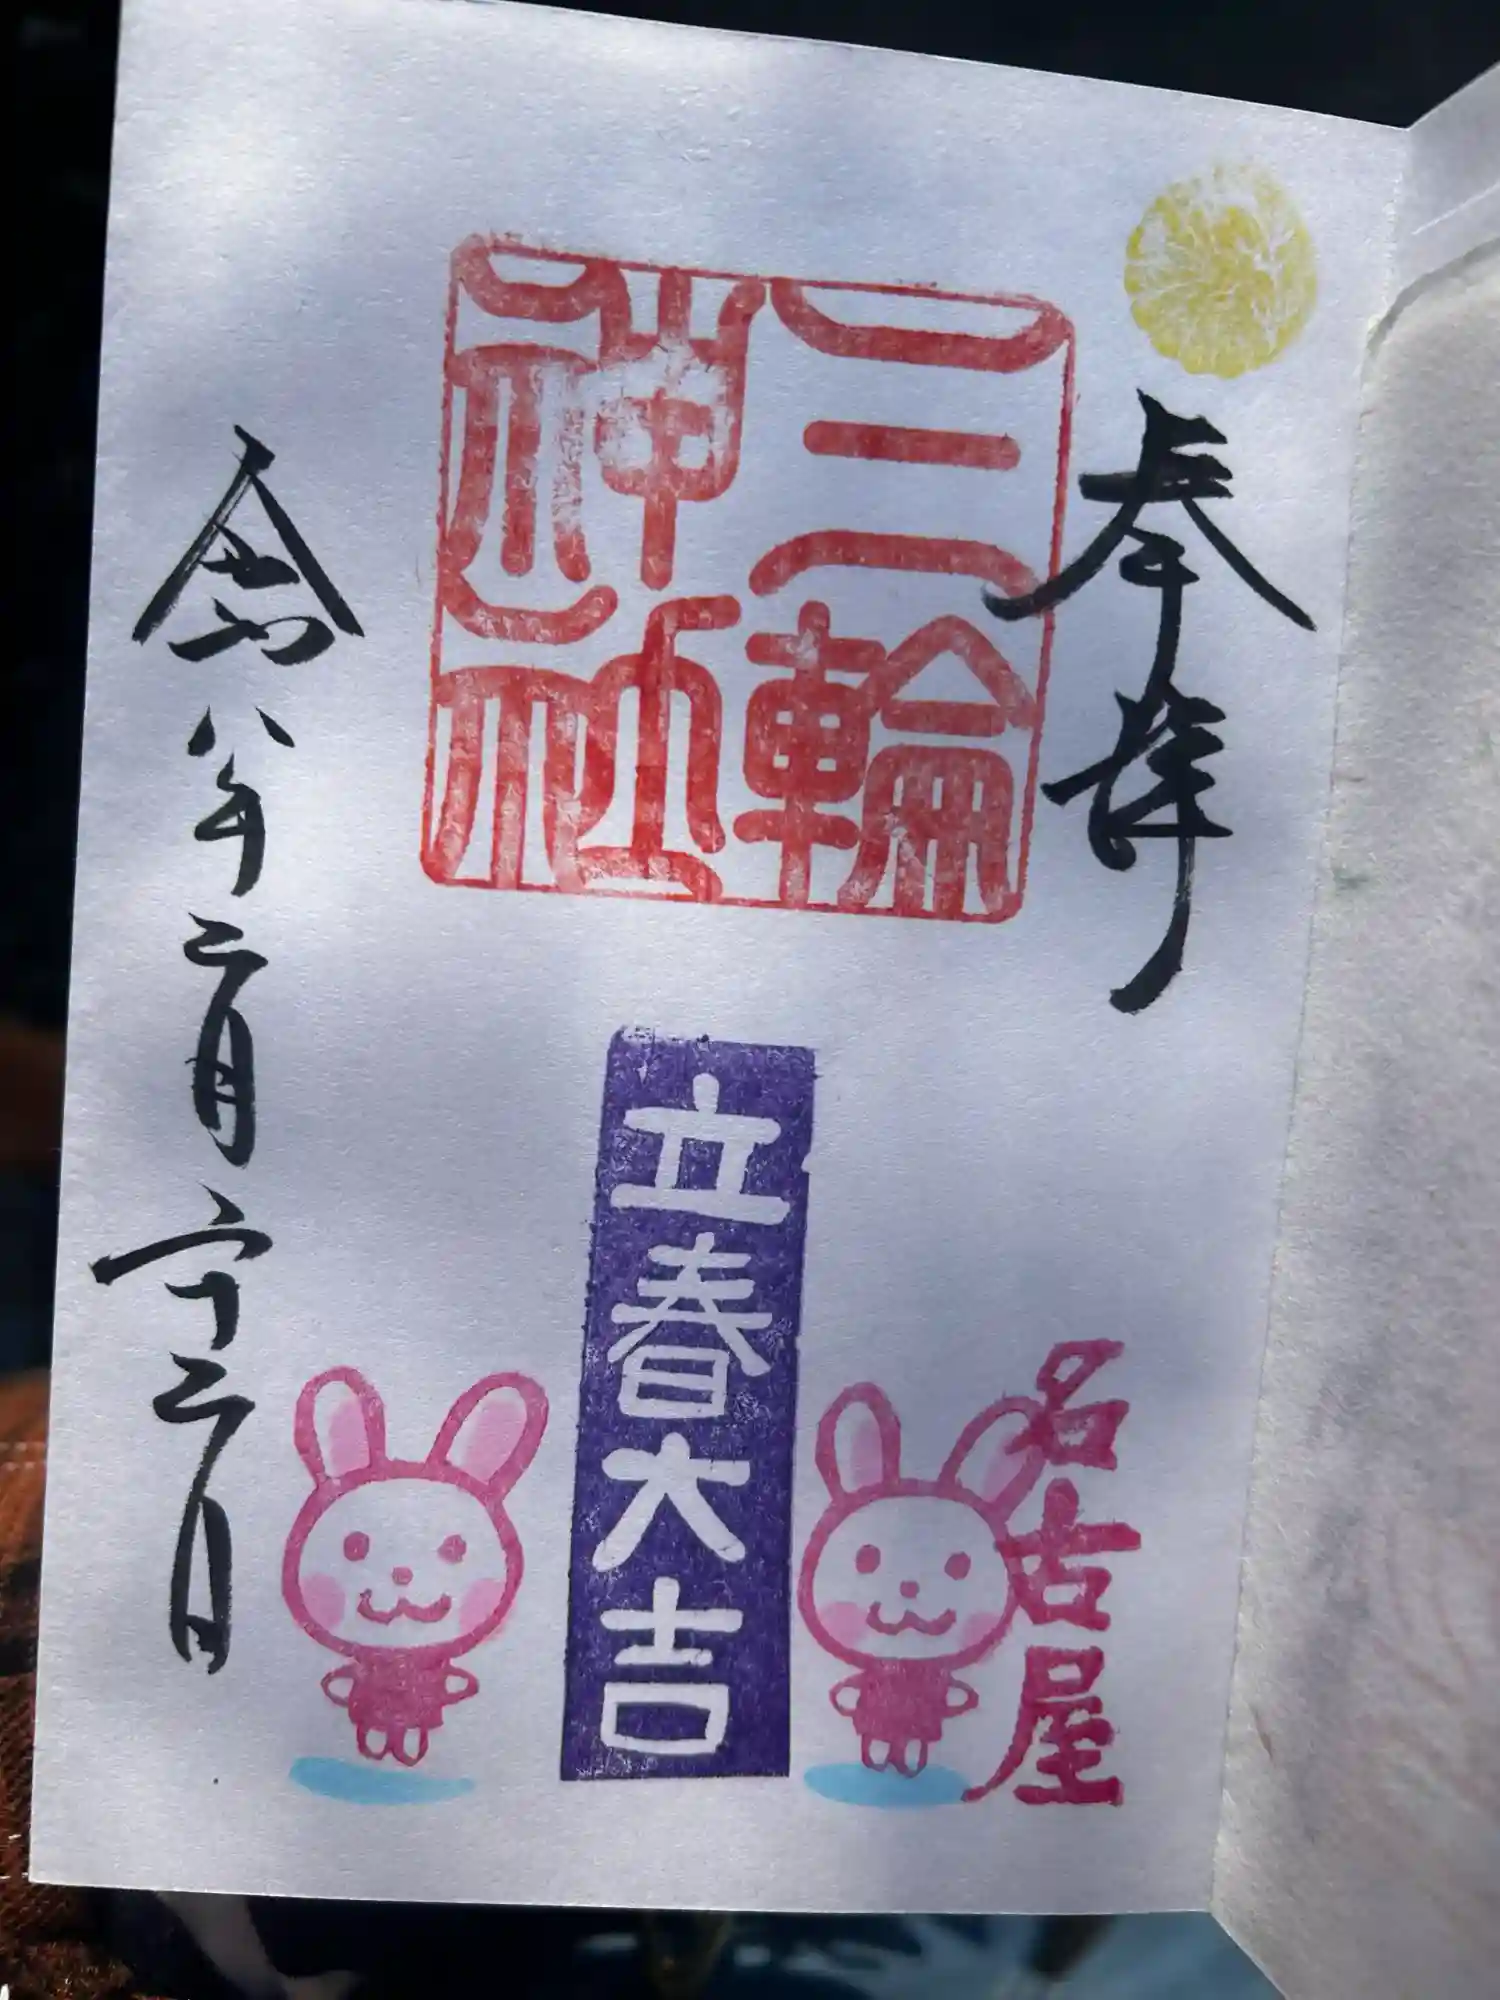 奉拝
名古屋
三輪
神社
立春大吉
令和八年二月二十二日